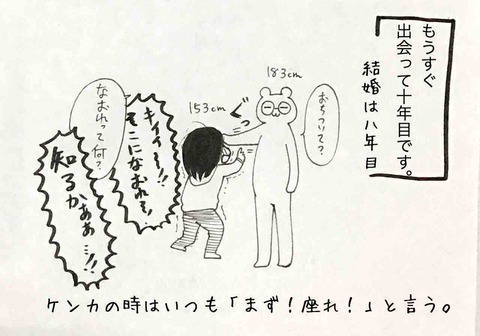 もうすぐ
出会って十年目です。
結婚は八年目
183cm
153cm
おちついて?
ぐっ
キィィー!!
そこになおれぇ!
なおれって何?
知るかぁぁー!!
ケンカの時はいつも「まず!座れ!」と言う。